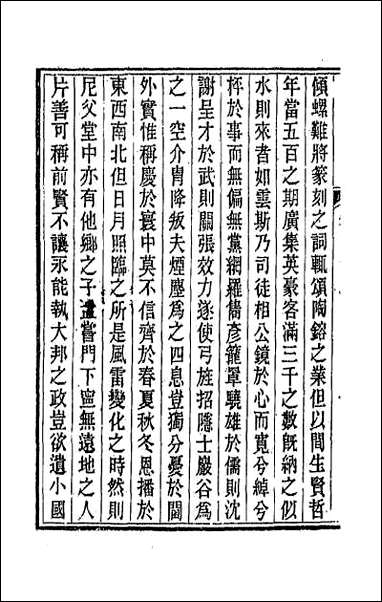 傾螺難將篆刻之詞輒頌陶鎔之業但以間生賢哲
年當五百之期廣集英豪客滿三千之數旣納之似
水則來者如雲斯乃司徒相公鏡於心而寬兮綽兮
秤於事而無偏無黨網羅雋彥籠罩驍雄於儒則沈
謝呈才於武則關張效力遂使弓旌招隱士巖谷爲
之一空介胄降叛夫煙塵爲之四息豈獨分憂於閫
外實惟稱慶於寰中莫不信齊於春夏秋冬恩播於
東西南北但日月照臨之所是風雷變化之時然則
尼父堂中亦有他鄉之子孟嘗門下寧無遠地之人
片善可稱前賢不讓永能執大邦之政豈欲遺小國